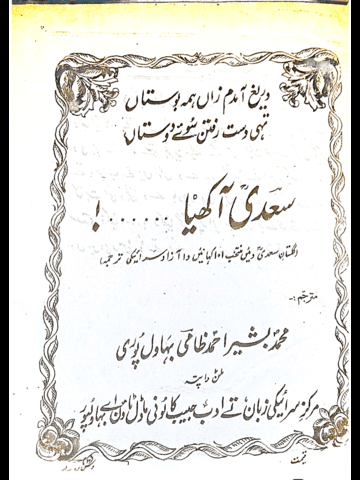 دریغ آمدم زاں ہمہ بوستاں
تہی دست رفتن سوئے دوستاں
سعدیؒ آکھیا ...... !
(گلستانِ سعدیؒ دیاں منتخب ۱۰۱ کہانیں دا آزاد سرائیکی ترجمہ)
مترجم:-
محمد بشیر احمد ظامی بہاول پوری
ملن دا پتہ
مرکز سرائیکی زبان تے ادب حبیب کالونی ماڈل ٹاؤن اے بہاولپور
قیمت